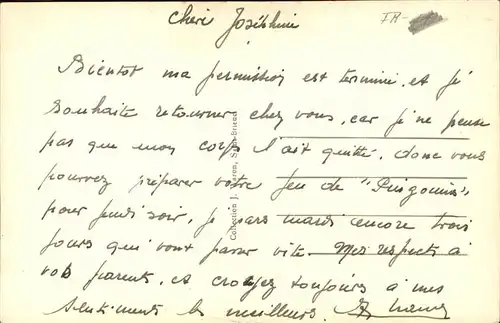 Chéri Joséphine
Bientot ma permission est terminé, et j'é
souhaite retourner chez vous, car je ne pense
pas que mon corps l'ait quitté. donc vous
pourrez préparer votre jeu de "Pingouins"
pour jeudi soir, je pars mardi encore trois
jours qui vont passer vite. Mes respects à
vos parents, et croyez toujours à mes
sentiments les meilleurs.
Collection J. Baron, Saint-Brieuc